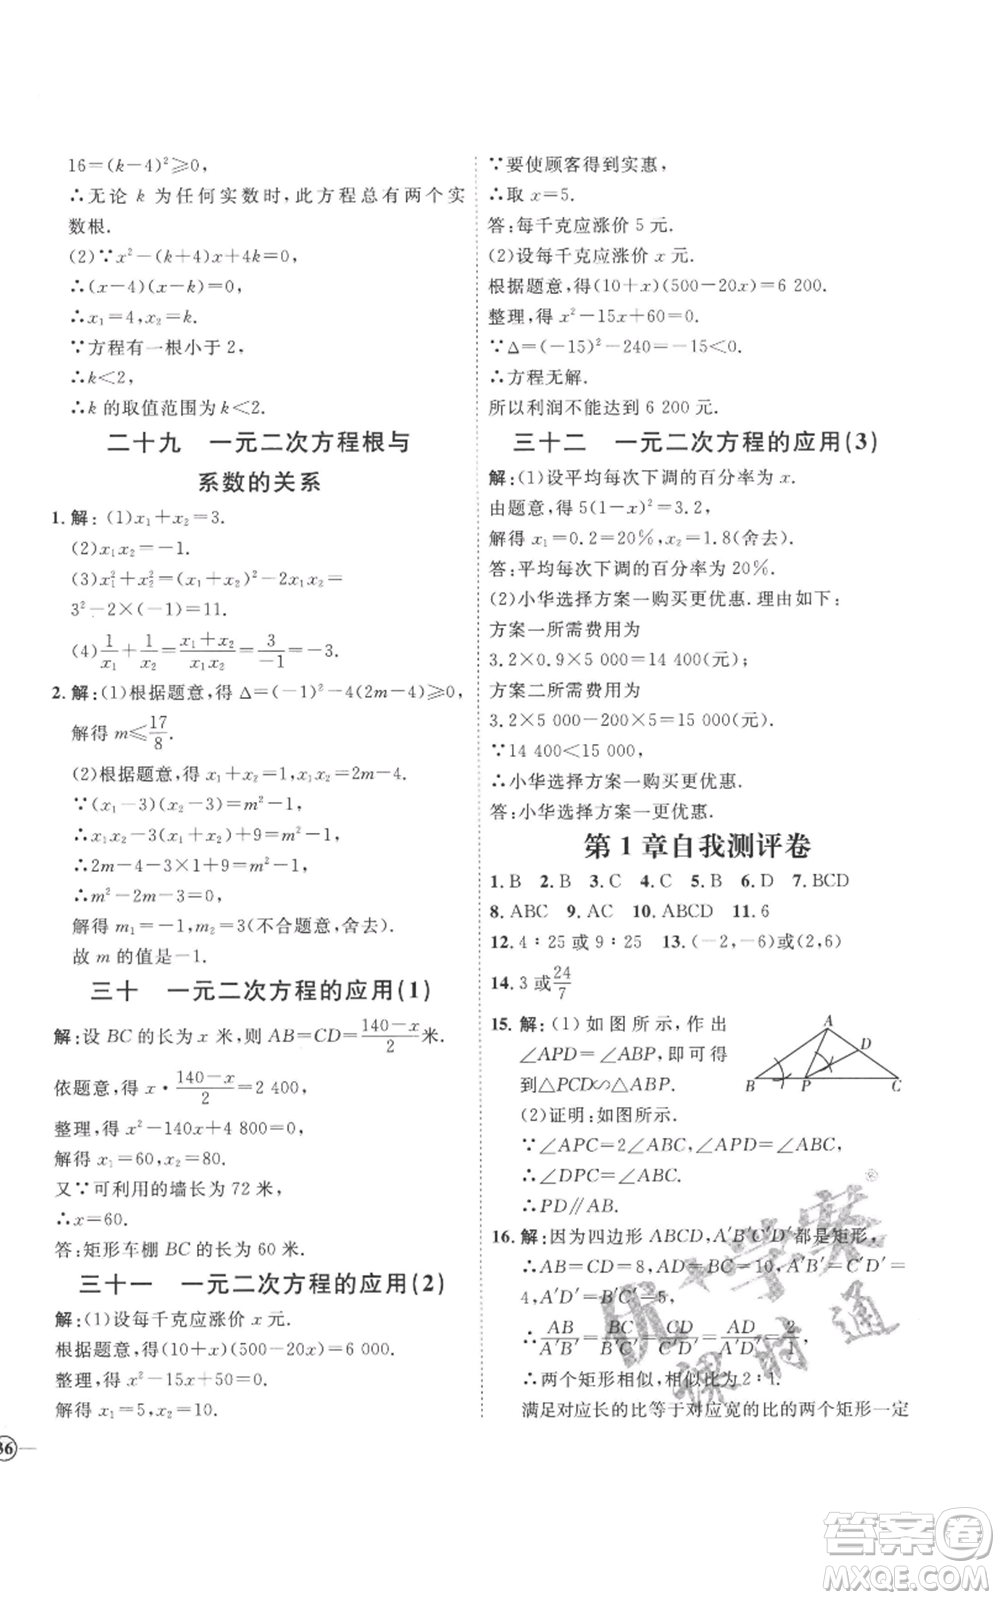 16=(k-4)²⩾0,
∴无论 k 为任何实数时,此方程总有两个实
数根.
(2)∵x²-(k+4)x+4k=0,
∴(x-4)(x-k)=0,
∴x₁=4,x₂=k.
∵方程有一根小于 2,
∴k<2,
∴k 的取值范围为 k<2.
二十九 一元二次方程根与
系数的关系
1. 解:(1)x₁+x₂=3.
(2)x₁x₂=-1.
(3)x₁²+x₂²=(x₁+x₂)²-2x₁x₂=
3²-2×(-1)=11.
(4)1/x₁+1/x₂=(x₁+x₂)/(x₁x₂)=3/(-1)=-3.
2. 解:(1)根据题意,得 Δ=(-1)²-4(2m-4)⩾0,
解得 m⩽17/8.
(2)根据题意,得 x₁+x₂=1,x₁x₂=2m-4.
∵(x₁-3)(x₂-3)=m²-1,
∴x₁x₂-3(x₁+x₂)+9=m²-1,
∴2m-4-3×1+9=m²-1,
∴m²-2m-3=0,
解得 m₁=-1,m₂=3(不合题意,舍去).
故 m 的值是-1.
三十 一元二次方程的应用(1)
解:设 BC 的长为 x 米,则 AB=CD=(140-x)/2米.
依题意,得 x·(140-x)/2=2 400,
整理,得 x²-140x+4 800=0,
解得 x₁=60,x₂=80.
又∵可利用的墙长为 72 米,
∴x=60.
答:矩形车棚 BC 的长为 60 米.
三十一 一元二次方程的应用(2)
解:(1)设每千克应涨价 x 元.
根据题意,得(10+x)(500-20x)=6 000,
整理,得 x²-15x+50=0,
解得 x₁=5,x₂=10.
36
∵要使顾客得到实惠,
∴取 x=5.
答:每千克应涨价 5 元.
(2)设每千克应涨价 x 元.
根据题意,得(10+x)(500-20x)=6 200.
整理,得 x²-15x+60=0.
∵Δ=(-15)²-240=-15<0.
∴方程无解.
所以利润不能达到 6 200 元.
三十二 一元二次方程的应用(3)
解:(1)设平均每次下调的百分率为 x.
由题意,得 5(1-x)²=3.2,
解得 x₁=0.2=20%,x₂=1.8(舍去).
答:平均每次下调的百分率为 20%.
(2)小华选择方案一购买更优惠.理由如下:
方案一所需费用为
3.2×0.9×5 000=14 400(元);
方案二所需费用为
3.2×5 000-200×5=15 000(元).
∵14 400<15 000,
∴小华选择方案一购买更优惠.
答:小华选择方案一更优惠.
第 1 章自我测评卷
1. B 2. B 3. C 4. C 5. B 6. D 7. BCD
8. ABC 9. AC 10. ABCD 11. 6
12. 4∶25或 9∶25 13. (-2,-6)或(2,6)
14. 3 或24/7
15. 解:(1)如图所示,作出
∠APD=∠ABP,即可得
到△PCD∽△ABP.
A
D
B
P
C
(2)证明:如图所示.
∵∠APC=2∠ABC,∠APD=∠ABC,
∴∠DPC=∠ABC.
∴PD∥AB.
16. 解:因为四边形 ABCD,A′B′C′D′都是矩形,
∴AB=CD=8,AD=BC=10,A′B′=C′D′=
4,A′D′=B′C′=5,
∴AB/A′B′=BC/B′C′=CD/C′D′=AD/A′D′=2/1.
∴两个矩形相似,相似比为 2∶1.
满足对应长的比等于对应宽的比的两个矩形一定
优+学案
课时通
答案卷
MXQE.COM